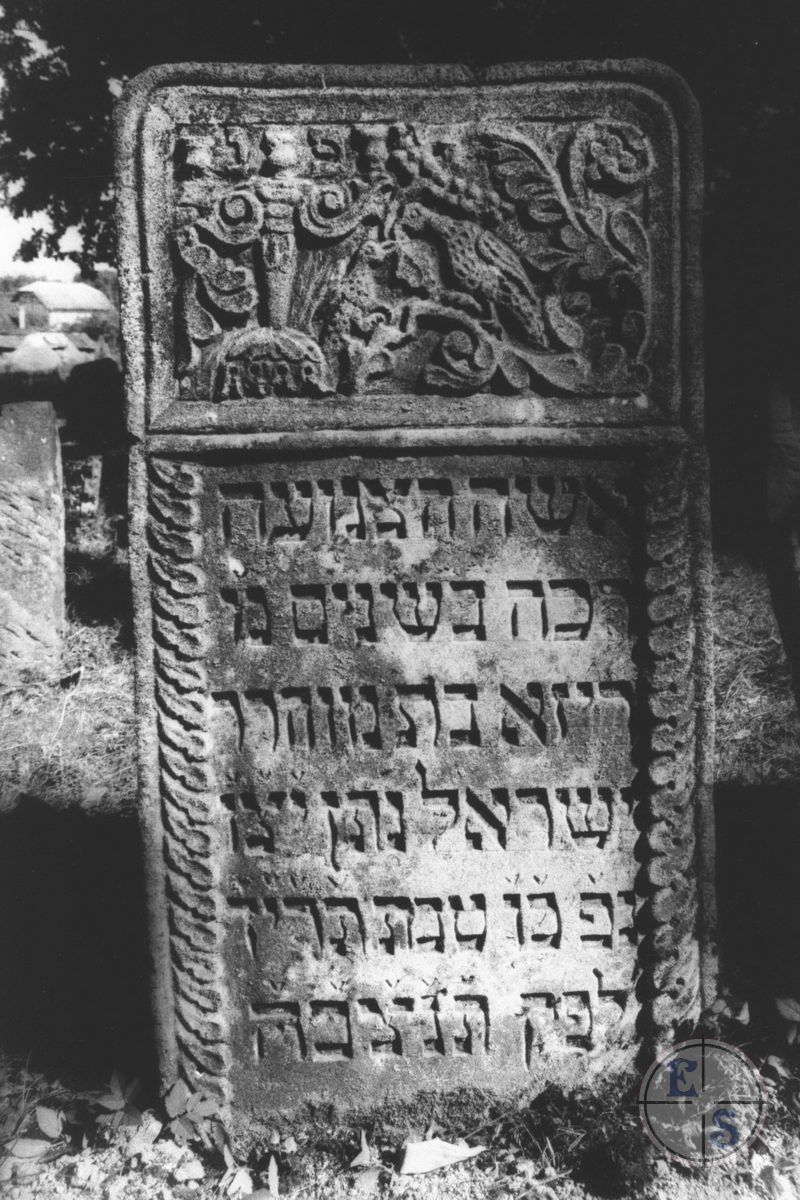 פ נ
אשה הצנועה
רכה בשנים מ'
רייזא בת מוהרר
ישראל נתן יצו
נפ כו טבת תריך
לפק תנצבה
ES